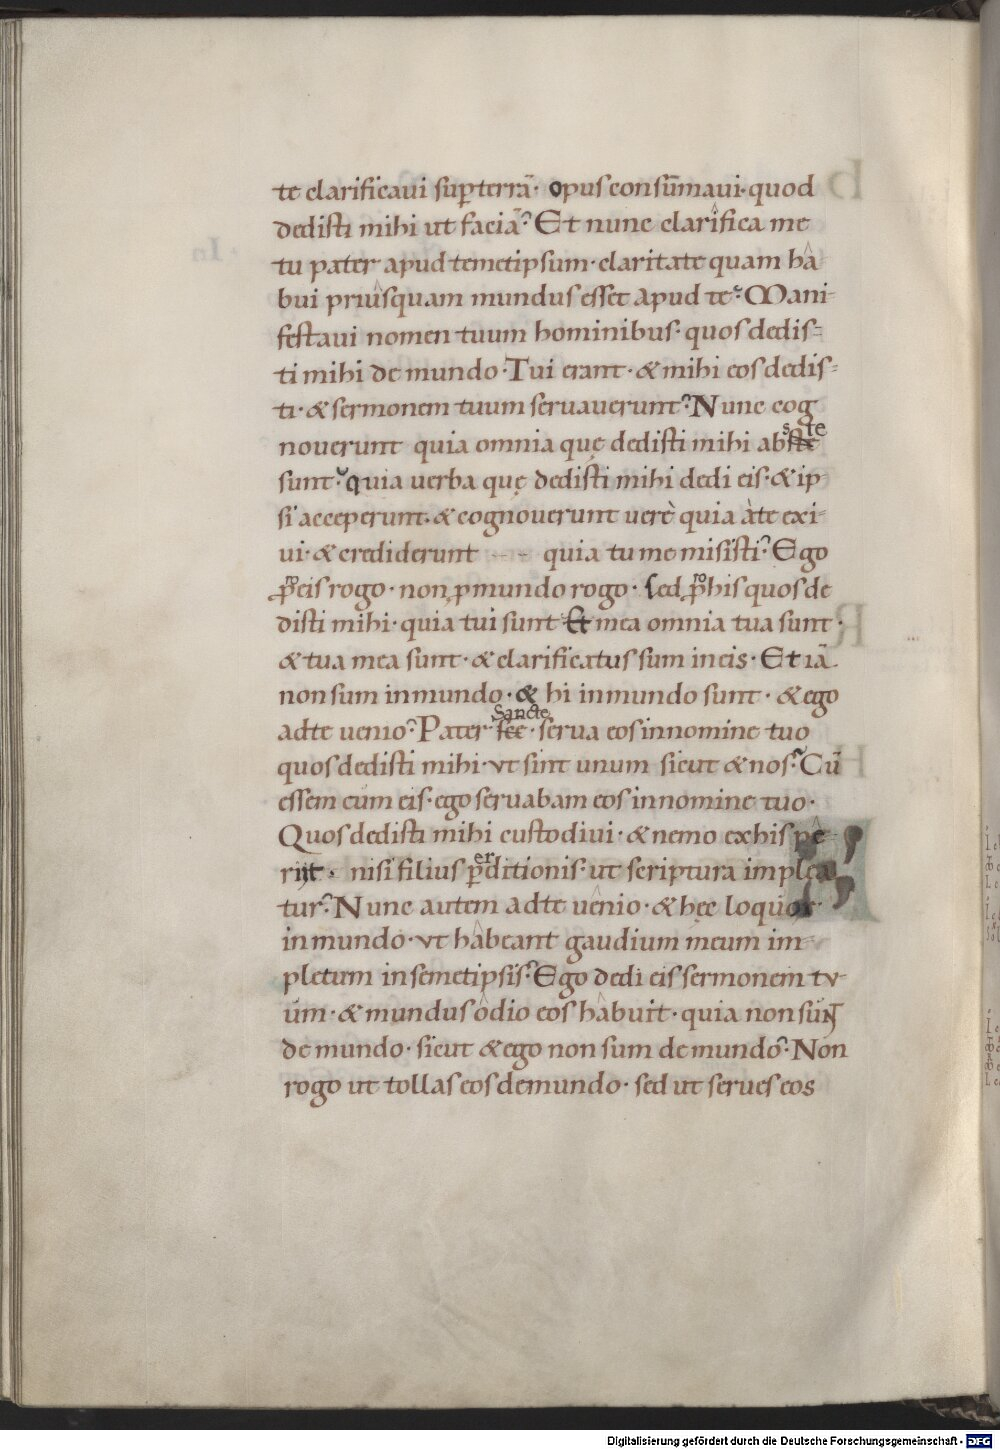 te clarificavi sup terrā· opus consūmavi· quod
dedisti mihi ut faciā· Et nunc clarifica me
tu pater apud temetipsum· claritate quam ha
bui priusquam mundus esset apud te· Mani-
festavi nomen tuum hominibus· quos dedis-
ti mihi de mundo· Tui erant· & mihi eos dedis-
ti· & sermonem tuum servaverunt· Nunc cog
noverunt quia omnia quę dedisti mihi abs te
sunt· quia verba quę dedisti mihi dedi eis· & ip
si acceperunt· & cognoverunt verè quia à te exi-
vi· & crediderunt quia tu me misisti· Ego
pro eis rogo· non p mundo rogo· sed pro his quos de
disti mihi· quia tui sunt Et mea omnia tua sunt·
& tua mea sunt· & clarificatus sum in eis· Et iā
non sum in mundo· & hi in mundo sunt· & ego
ad te venio· Pater Sancte· serva eos in nomine tuo
quos dedisti mihi· ut sint unum sicut & nos· Cū
essem cum eis· ego servabam eos in nomine tuo·
Quos dedisti mihi custodivi· & nemo ex his pe
riit· nisi filius perditionis· ut scriptura implea
tur· Nunc autem ad te venio· & hęc loquor
in mundo· ut habeant gaudium meum im-
pletum in semetipsis· Ego dedi eis sermonem tu-
um· & mundus odio eos habuit· quia non sunt
de mundo· sicut & ego non sum de mundo· Non
rogo ut tollas eos de mundo· sed ut serves eos
Digitalisierung gefördert durch die Deutsche Forschungsgemeinschaft - DFG